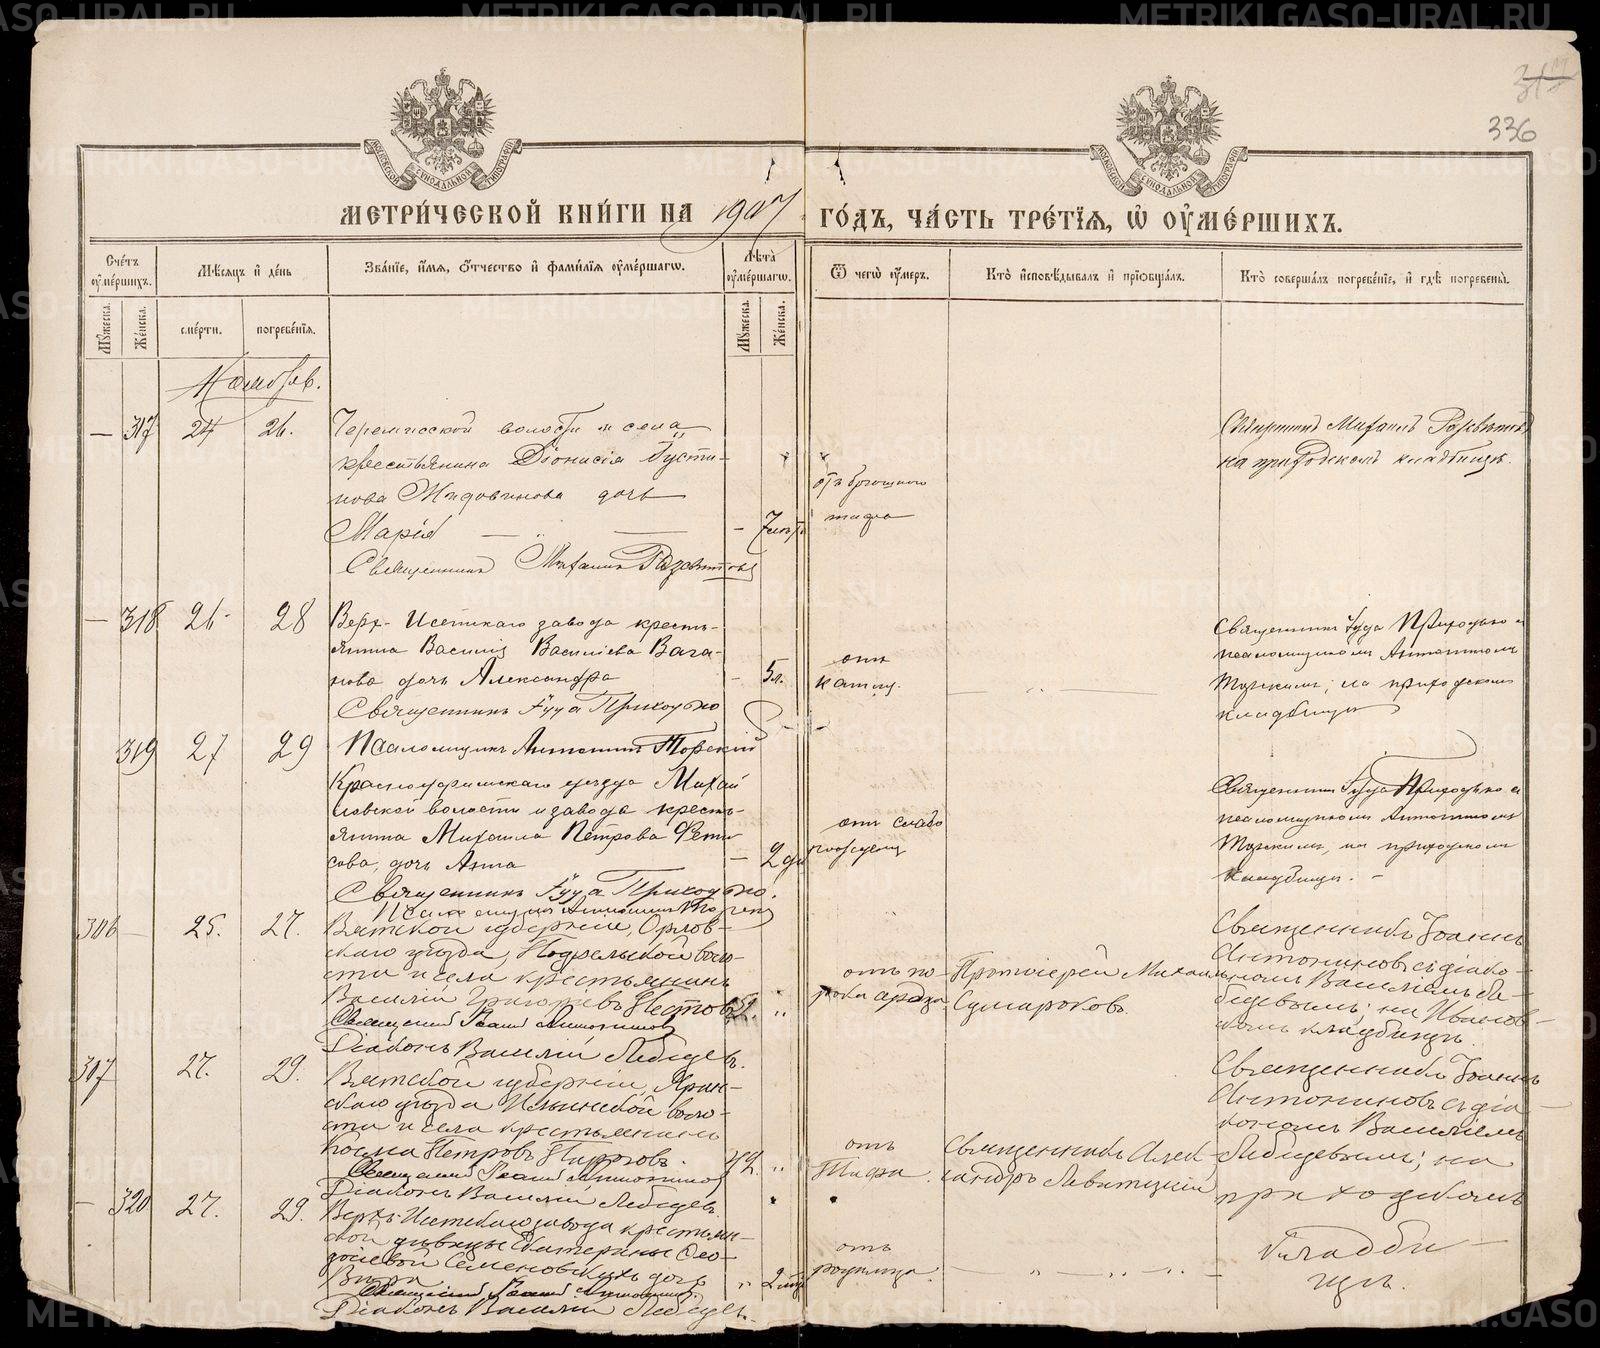 336
МЕТРИ́ЧЕСКОЙ КНИ́ГИ НА 1907 ГО́ДЪ, ЧА́СТЬ ТРЕ́ТЇѦ, Ѡ҆ ОУ҆МЕ́РШИХЪ.
Сче́тъ оу҆ме́ршихъ.
Мѣ́сяцъ и҆ де́нь
Зва́нїе, и҆́мѧ, ѻ҆́тчество и҆ фами́лїѧ оу҆ме́ршагѡ.
Лѣ́та оу҆ме́ршагѡ.
Ѿ чегѡ̀ оу҆́меръ.
Кто̀ и҆сповѣ́дывалъ и҆ прїѡбща́лъ.
Кто̀ соверша́лъ погребе́нїе, и҆ гдѣ̀ погребены̀.
Мꙋ́жеска.
Же́нска.
сме́рти.
погребе́нїѧ.
Мꙋ́жеска.
Же́нска.
Ноябрь.
— 317 24 26.
Черемисской волости и села
крестьянина Діонисія Густи-
нова дочь
Марія
Священникъ Михаилъ
отъ брюшного
тифа
Священникъ Михаилъ
на приходскомъ кладбищѣ.
— 318 26 28
Верх-Исетскаго завода кресть-
янина Василія Васильева Вага-
нова дочь Александра
— 5л.
Священникъ Іуда Приходько
отъ
Священникъ Іуда Приходько с
псаломщикомъ Антониномъ
Торскимъ, на приходскомъ
кладбищѣ
319 27 29
Псаломщикъ Антонинъ Торскій
Красноуфимскаго уѣзда Михай
ловской волости и завода кресть-
янина Михаила Петрова Фети
сова, дочь Анна
— 2 дн
Священникъ Іуда Приходько.
Псаломщикъ Антонинъ Торскій
отъ слабо
Священникъ Іуда Приходько с
псаломщикомъ Антониномъ
Торскимъ, на приходскомъ
кладбищѣ. –
306 — 25. 27.
Вятской губерніи, Орлов-
скаго уѣзда, воло-
сти и села крестьянинъ
Василій Григорьевъ Пестовъ
Священникъ Іоаннъ Антониновъ
Діаконъ Василій Лебедевъ.
отъ по-
рока сердца
Протоіерей Михаилъ
Сумароковъ.
Священникъ Іоаннъ
Антониновъ съ діако-
номъ Василіемъ Ле-
бедевымъ; на Иванов-
скомъ кладбищѣ.
307 27. 29.
Вятской губерніи, Яран-
скаго уѣзда Ильинской воло-
сти и села крестьянинъ
Косма Петровъ
42. „
Священникъ Іоаннъ Антониновъ
Діаконъ Василій Лебедевъ
отъ
Тифа.
Священникъ Алек-
сандръ Левитскій
Священникъ Іоаннъ
Антониновъ съ діа-
кономъ Василіемъ
Лебедевымъ; на
приходскомъ
кладби-
щѣ.
— 320 27. 29.
Верхъ-Исетскаго завода крестьян-
ской дѣвицы Екатерины Ѳео-
досіевой Семеновскихъ дочь
Вѣра
Священникъ Іоаннъ Антониновъ.
Діаконъ Василій Лебедевъ.
отъ
родимца.
METRIKI.GASO-URAL.RU